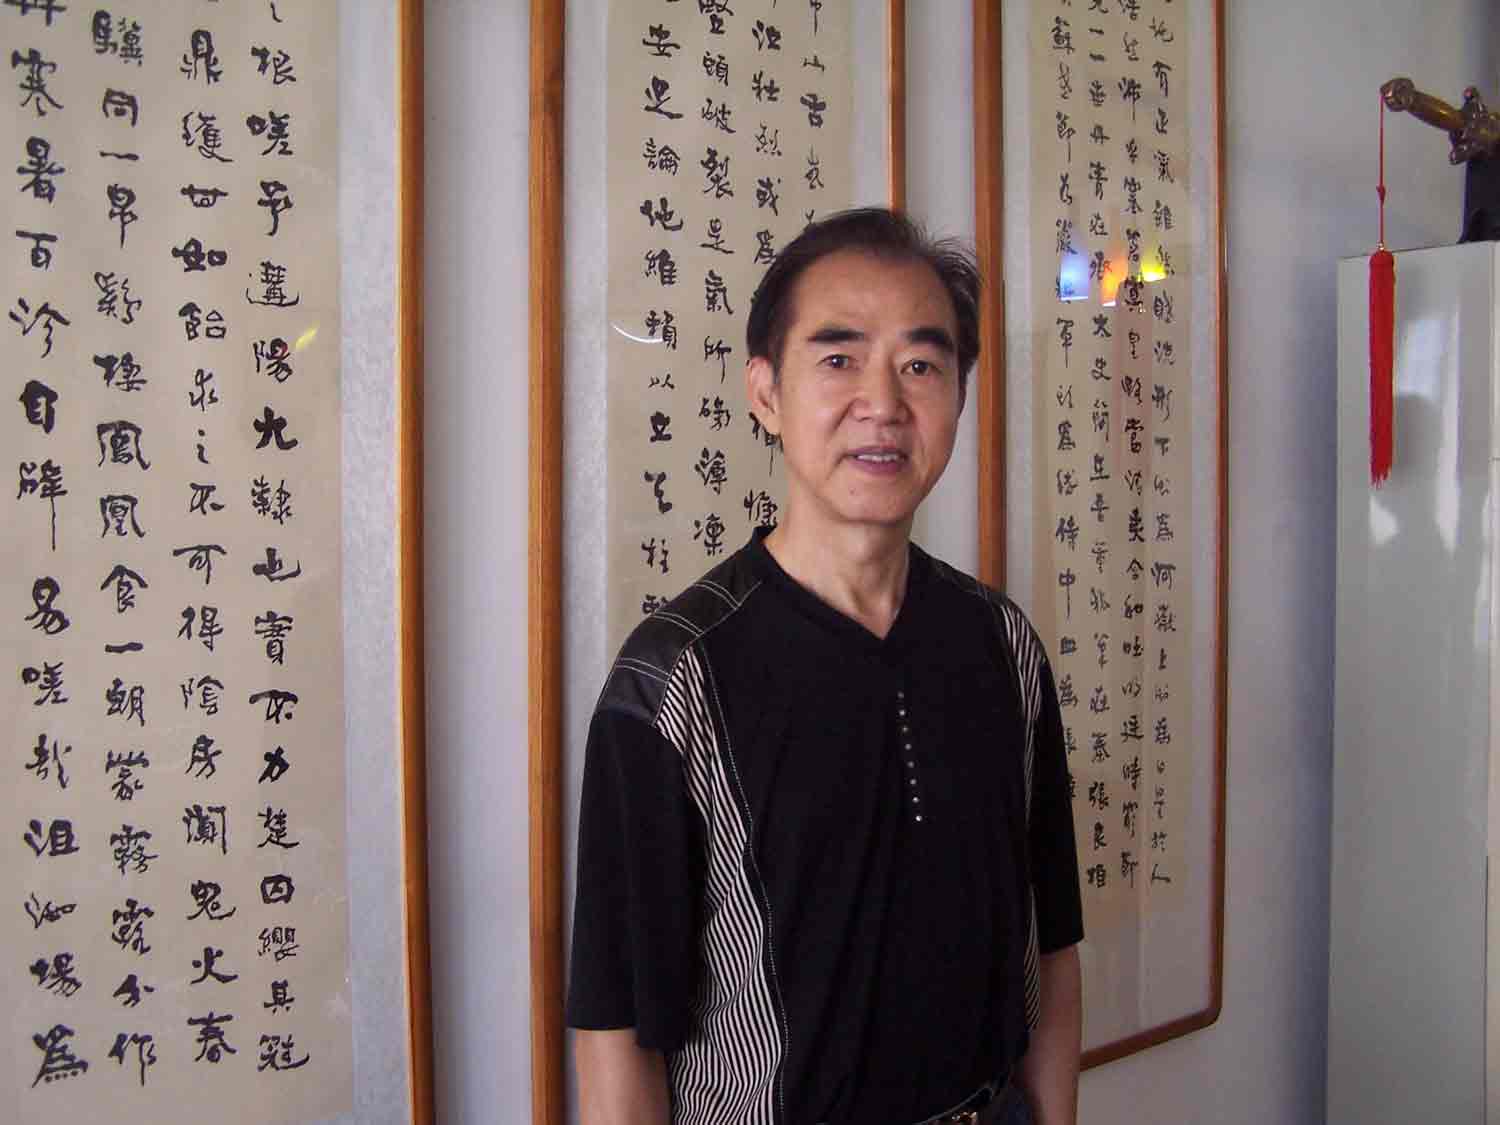 地有正氣雜然賦流形下則為河嶽上則為日星於人
浩然沛乎塞蒼冥皇路當清夷含和吐明廷時窮節
見一一垂丹青在齊太史簡在晉董狐筆在秦張良椎
蘇武節為嚴將軍頭為嵇侍中血為張
山舌或
泣壯烈或為 楫慷
豎頭破裂是氣所磅薄凜
安足論地維賴以立天柱
之根嗟予遘陽九隸也實不力楚囚纓其冠
鼎鑊甘如飴求之不可得陰房闃鬼火春
驥同一皁鷄棲鳳凰食一朝蒙霧露分作
寒暑百沴自辟易嗟哉沮洳場為